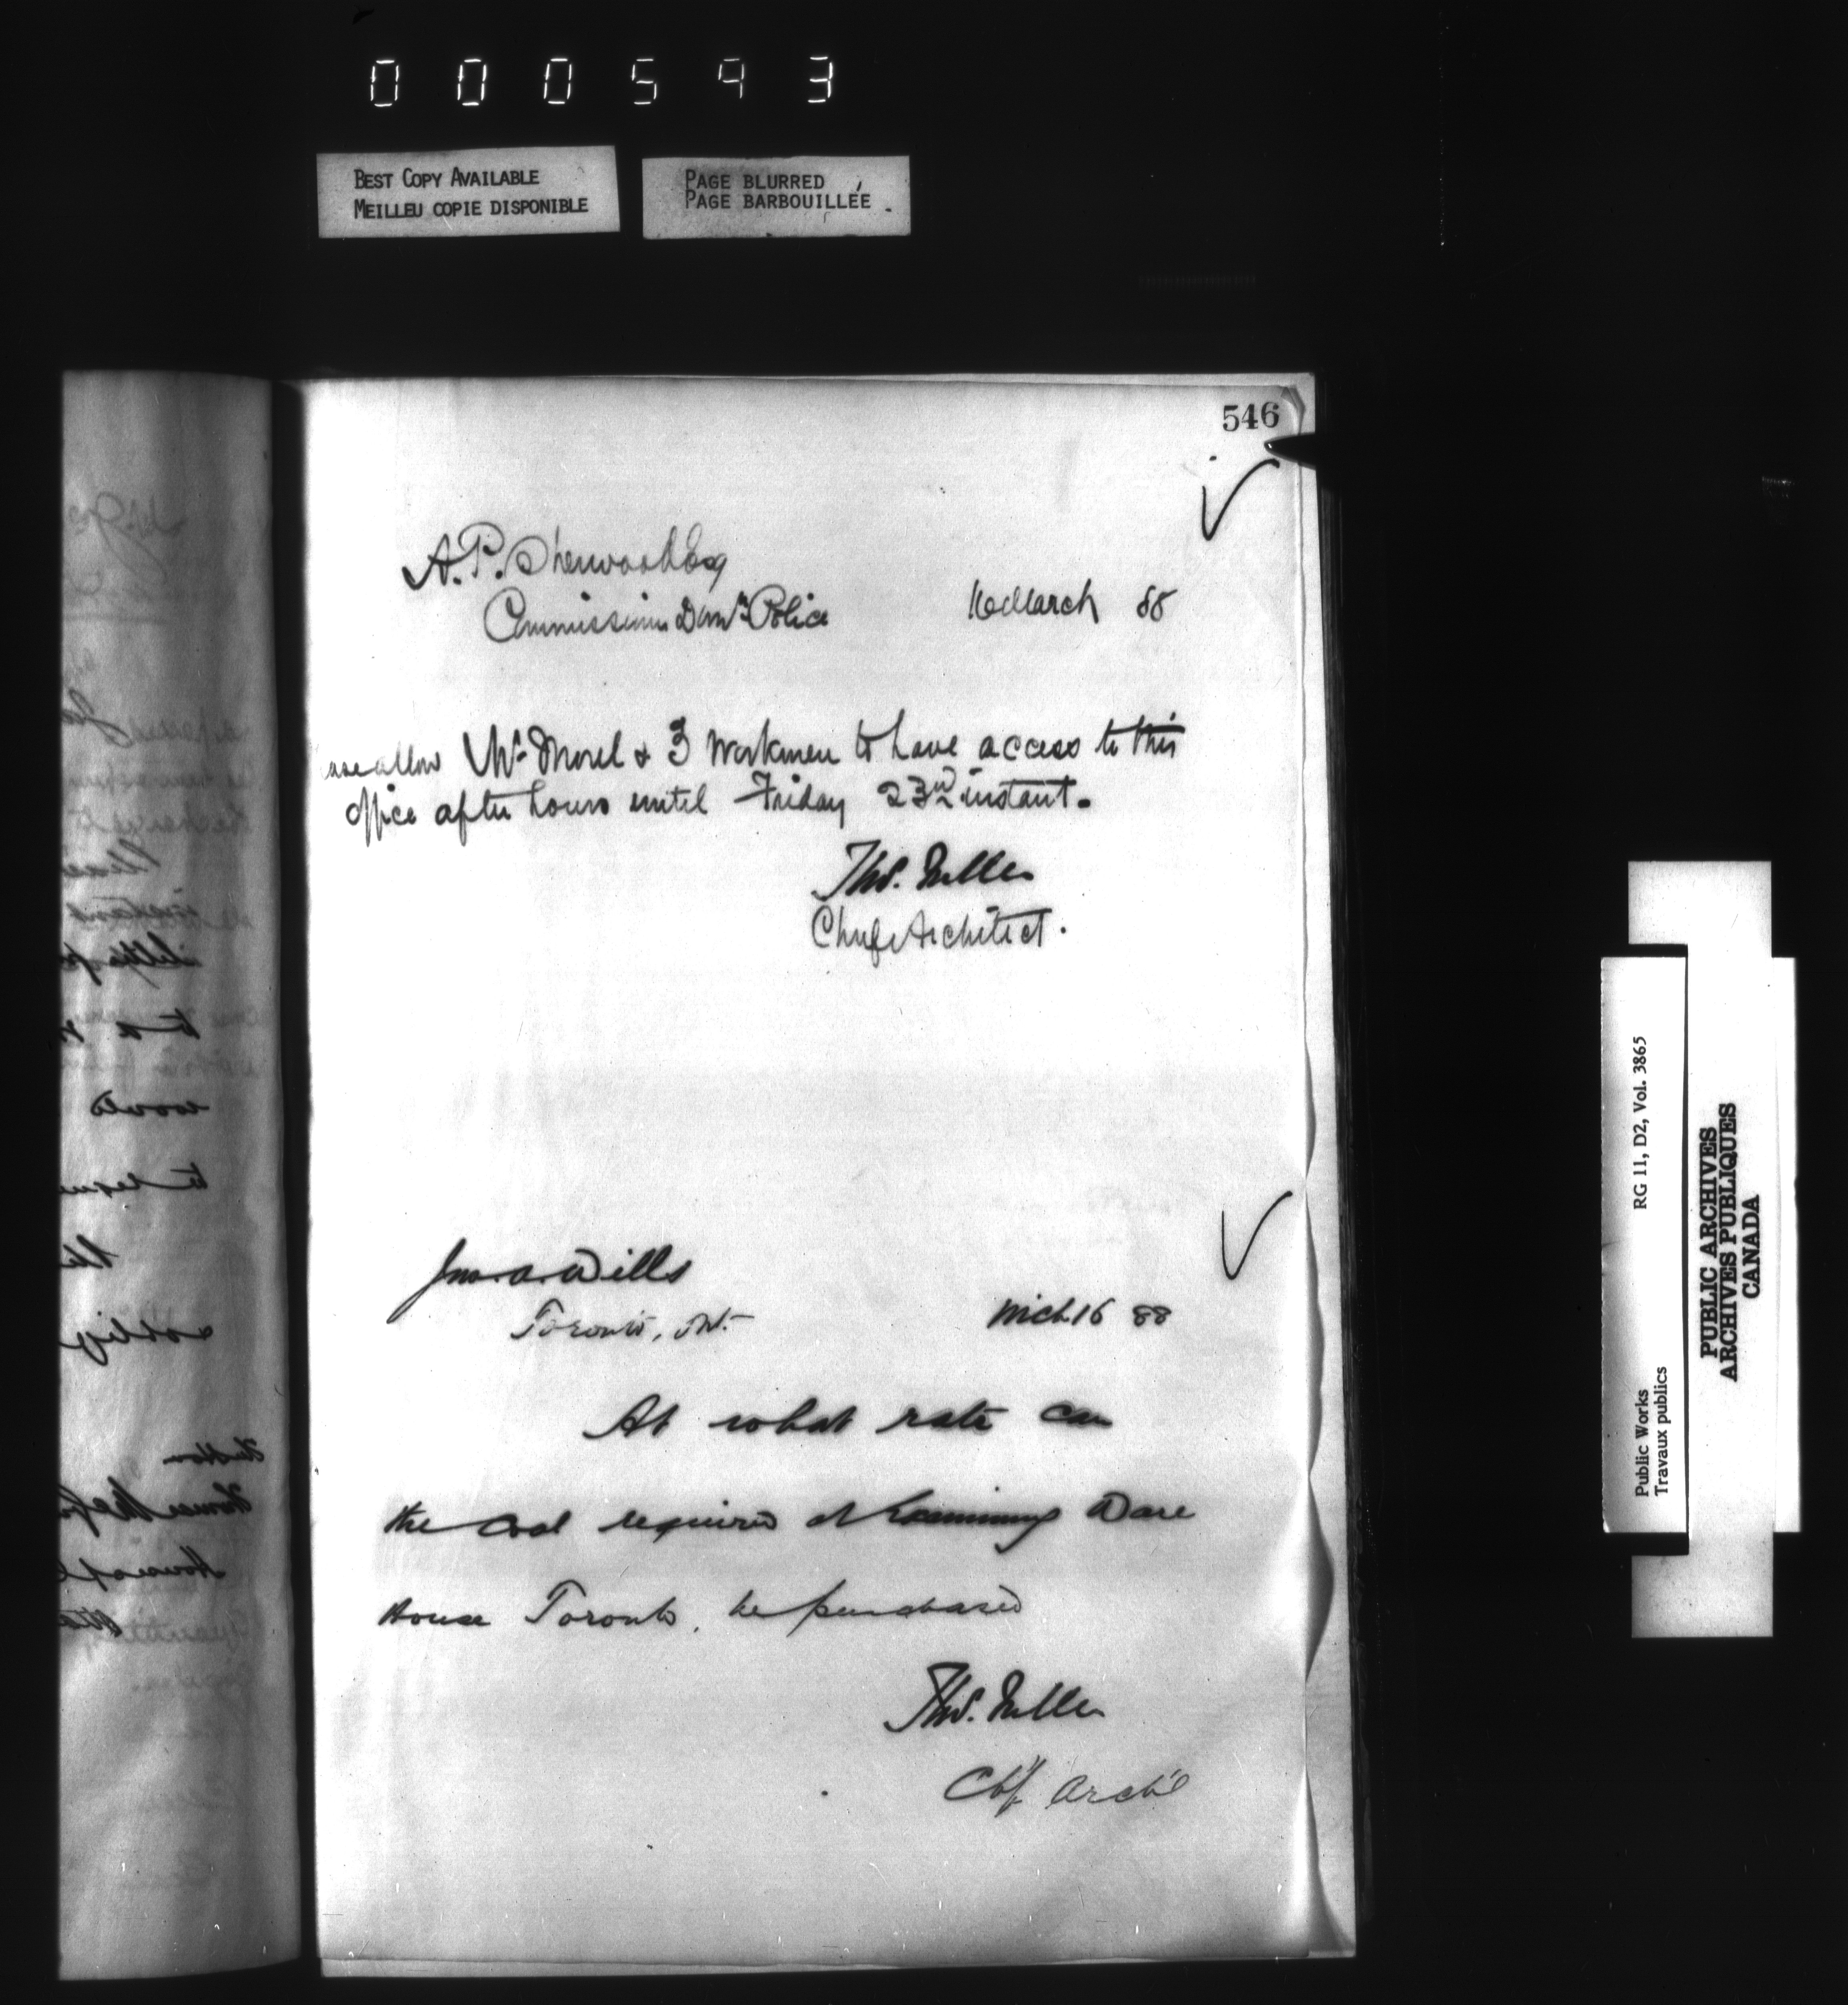 000593
BEST COPY AVAILABLE
MEILLEU COPIE DISPONIBLE
PAGE BLURRED
PAGE BARBOUILLÉE
546
A. P. Sherwood Esq
Commissioner Domn Police
16 March 88
allow Mr Morel & 3 workmen to have access to this
office after hours until Friday 23rd instant.
Thos. Fuller
Chief Architect.
Jno. A. Wills
Toronto, Ont.
Mch 16 88
At what rate can
the coal required at Examining Ware
House Toronto, be purchased
Thos. Fuller
Chf Archt
Public Works
Travaux publics
RG 11, D2, Vol. 3865
PUBLIC ARCHIVES
ARCHIVES PUBLIQUES
CANADA